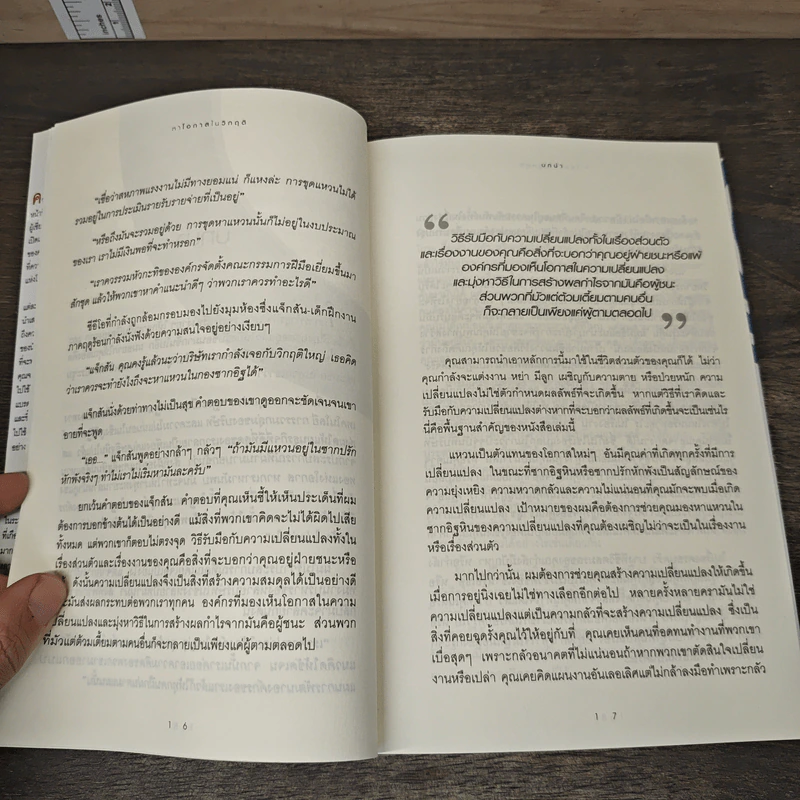 หาโอกาสในวิกฤติ
"เชื่อว่าสหภาพแรงงานไม่มีทางยอมแน่ ก็แหงล่ะ การขุดแหวนไม่ได้
รวมอยู่ในการประเมินรายรับรายจ่ายที่เป็นอยู่"
"หรือถึงมันจะรวมอยู่ด้วย การขุดหาแหวนนั้นก็ไม่อยู่ในงบประมาณ
ของเรา เราไม่มีเงินพอที่จะทำหรอก"
"เราควรรวมหัวกะทิขององค์กรจัดตั้งคณะกรรมการฝีมือเยี่ยมขึ้นมา
สักชุด แล้วให้พวกเขาหาคำแนะนำดีๆ ว่าพวกเราควรทำอะไรดี"
ซีอีโอที่กำลังถูกล้อมกรอบมองไปยังมุมห้องซึ่งแจ็กสัน-เด็กฝึกงาน
ภาคฤดูร้อนกำลังนั่งฟังด้วยความสนใจอยู่อย่างเงียบๆ
"แจ็กสัน คุณคงรู้แล้วนะว่าบริษัทเรากำลังเจอกับวิกฤติใหญ่ เธอคิด
ว่าเราควรจะทำยังไงถึงจะหาแหวนในกองซากอิฐได้"
แจ็กสันนั่งด้วยท่าทางไม่เป็นสุข คำตอบของเขาดูออกจะชัดเจนจนเขา
อายที่จะพูด
"เธอ..." แจ็กสันพูดอย่างกล้าๆ กลัวๆ "ถ้ามันมีแหวนอยู่ในซากปรัก
หักพังจริงๆ ทำไมเราไม่เริ่มหามันละครับ"
ยกเว้นคำตอบของแจ็กสัน คำตอบที่คุณเห็นชี้ให้เห็นประเด็นที่ผม
ต้องการบอกข้างต้นได้เป็นอย่างดี แม้สิ่งที่พวกเขาคิดจะไม่ได้ผิดไปเสีย
ทั้งหมด แต่พวกเขาก็ตอบไม่ตรงจุด วิธีรับมือกับความเปลี่ยนแปลงทั้งใน
เรื่องส่วนตัวและเรื่องงานของคุณคือสิ่งที่จะบอกว่าคุณอยู่ฝ่ายชนะหรือ
ดังนั้นความเปลี่ยนแปลงจึงเป็นสิ่งที่สร้างความสมดุลได้เป็นอย่างดี
มันส่งผลกระทบต่อพวกเราทุกคน องค์กรที่มองเห็นโอกาสในความ
เปลี่ยนแปลงและมุ่งหาวิธีในการสร้างผลกำไรจากมันคือผู้ชนะ ส่วนพวก
ที่มัวแต่ต้วมเตี้ยมตามคนอื่นก็จะกลายเป็นเพียงแค่ผู้ตามตลอดไป
16
บทนำ
“
วิธีรับมือกับความเปลี่ยนแปลงทั้งในเรื่องส่วนตัว
และเรื่องงานของคุณคือสิ่งที่จะบอกว่าคุณอยู่ฝ่ายชนะหรือแพ้
องค์กรที่มองเห็นโอกาสในความเปลี่ยนแปลง
และมุ่งหาวิธีในการสร้างผลกำไรจากมันคือผู้ชนะ
ส่วนพวกที่มัวแต่ต้วมเตี้ยมตามคนอื่น
ก็จะกลายเป็นเพียงแค่ผู้ตามตลอดไป ”
คุณสามารถนำเอาหลักการนี้มาใช้ในชีวิตส่วนตัวของคุณก็ได้ ไม่ว่า
คุณกำลังจะแต่งงาน หย่า มีลูก เผชิญกับความตาย หรือป่วยหนัก ความ
เปลี่ยนแปลงไม่ใช่ตัวกำหนดผลลัพธ์ที่จะเกิดขึ้น หากแต่วิธีที่เราคิดและ
รับมือกับความเปลี่ยนแปลงต่างหากที่จะบอกว่าผลลัพธ์ที่เกิดขึ้นจะเป็นเช่นไร
นี่คือพื้นฐานสำคัญของหนังสือเล่มนี้
แหวนเป็นตัวแทนของโอกาสใหม่ๆ อันมีคุณค่าที่เกิดทุกครั้งที่มีการ
เปลี่ยนแปลง ในขณะที่ซากอิฐหินหรือซากปรักหักพังเป็นสัญลักษณ์ของ
ความยุ่งเหยิง ความหวาดกลัวและความไม่แน่นอนที่คุณมักจะพบเมื่อเกิด
ความเปลี่ยนแปลง เป้าหมายของผมคือต้องการช่วยคุณมองหาแหวนใน
ซากอิฐหินของความเปลี่ยนแปลงที่คุณต้องเผชิญไม่ว่าจะเป็นในเรื่องงาน
หรือเรื่องส่วนตัว
มากไปกว่านั้น ผมต้องการช่วยคุณสร้างความเปลี่ยนแปลงให้เกิดขึ้น
เมื่อการอยู่นิ่งเฉยไม่ใช่ทางเลือกอีกต่อไป หลายครั้งหลายครามันไม่ใช่
ความเปลี่ยนแปลงแต่เป็นความกลัวที่จะสร้างความเปลี่ยนแปลง ซึ่งเป็น
สิ่งที่คอยฉุดรั้งคุณไว้ให้อยู่กับที่ คุณเคยเห็นคนที่อดทนทำงานที่พวกเขา
เบื่อสุดๆ เพราะกลัวอนาคตที่ไม่แน่นอนถ้าหากพวกเขาตัดสินใจเปลี่ยน
งานหรือเปล่า คุณเคยคิดแผนงานอันเลอเลิศแต่ไม่กล้าลงมือทำเพราะกลัว
17